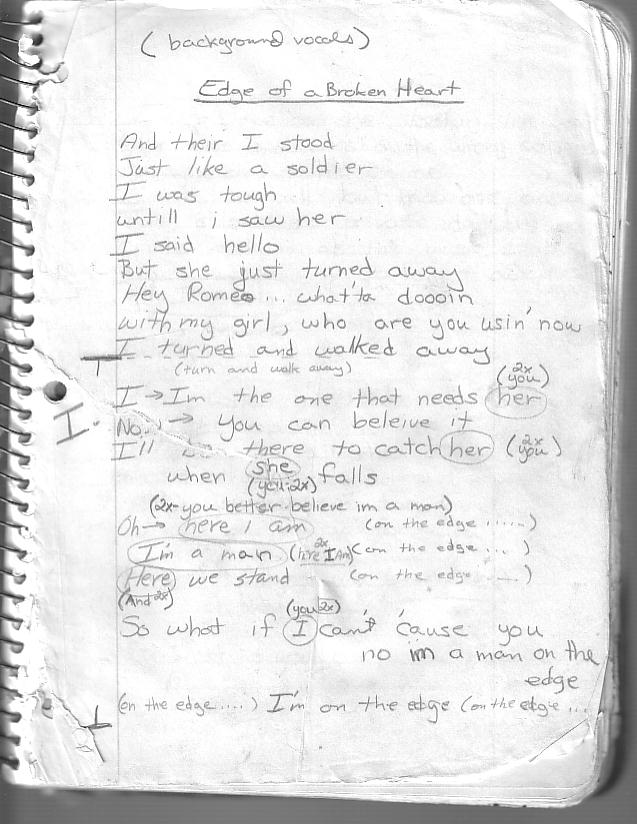 (background vocals)
Edge of a Broken Heart
And their I stood
Just like a soldier
I was tough
untill i saw her
I said hello
But she just turned away
Hey Romeo... what'ta doooin
with my girl, who are you usin' now
I turned and walked away
(turn and walk away)
(2x you)
I → Im the one that needs her
No → you can beleive it
I'll there to catch her (2x you)
when she falls
(you-2x)
(2x-you better believe im a man)
Oh → here i am (on the edge .....)
I'm a man (2x here I Am) (on the edge ... )
Here we stand (on the edge ....)
(And 2x)
(you 2x)
So what if I can't 'cause you
no im a man on the
edge
(on the edge ....) I'm on the edge (on the edge ...
I.